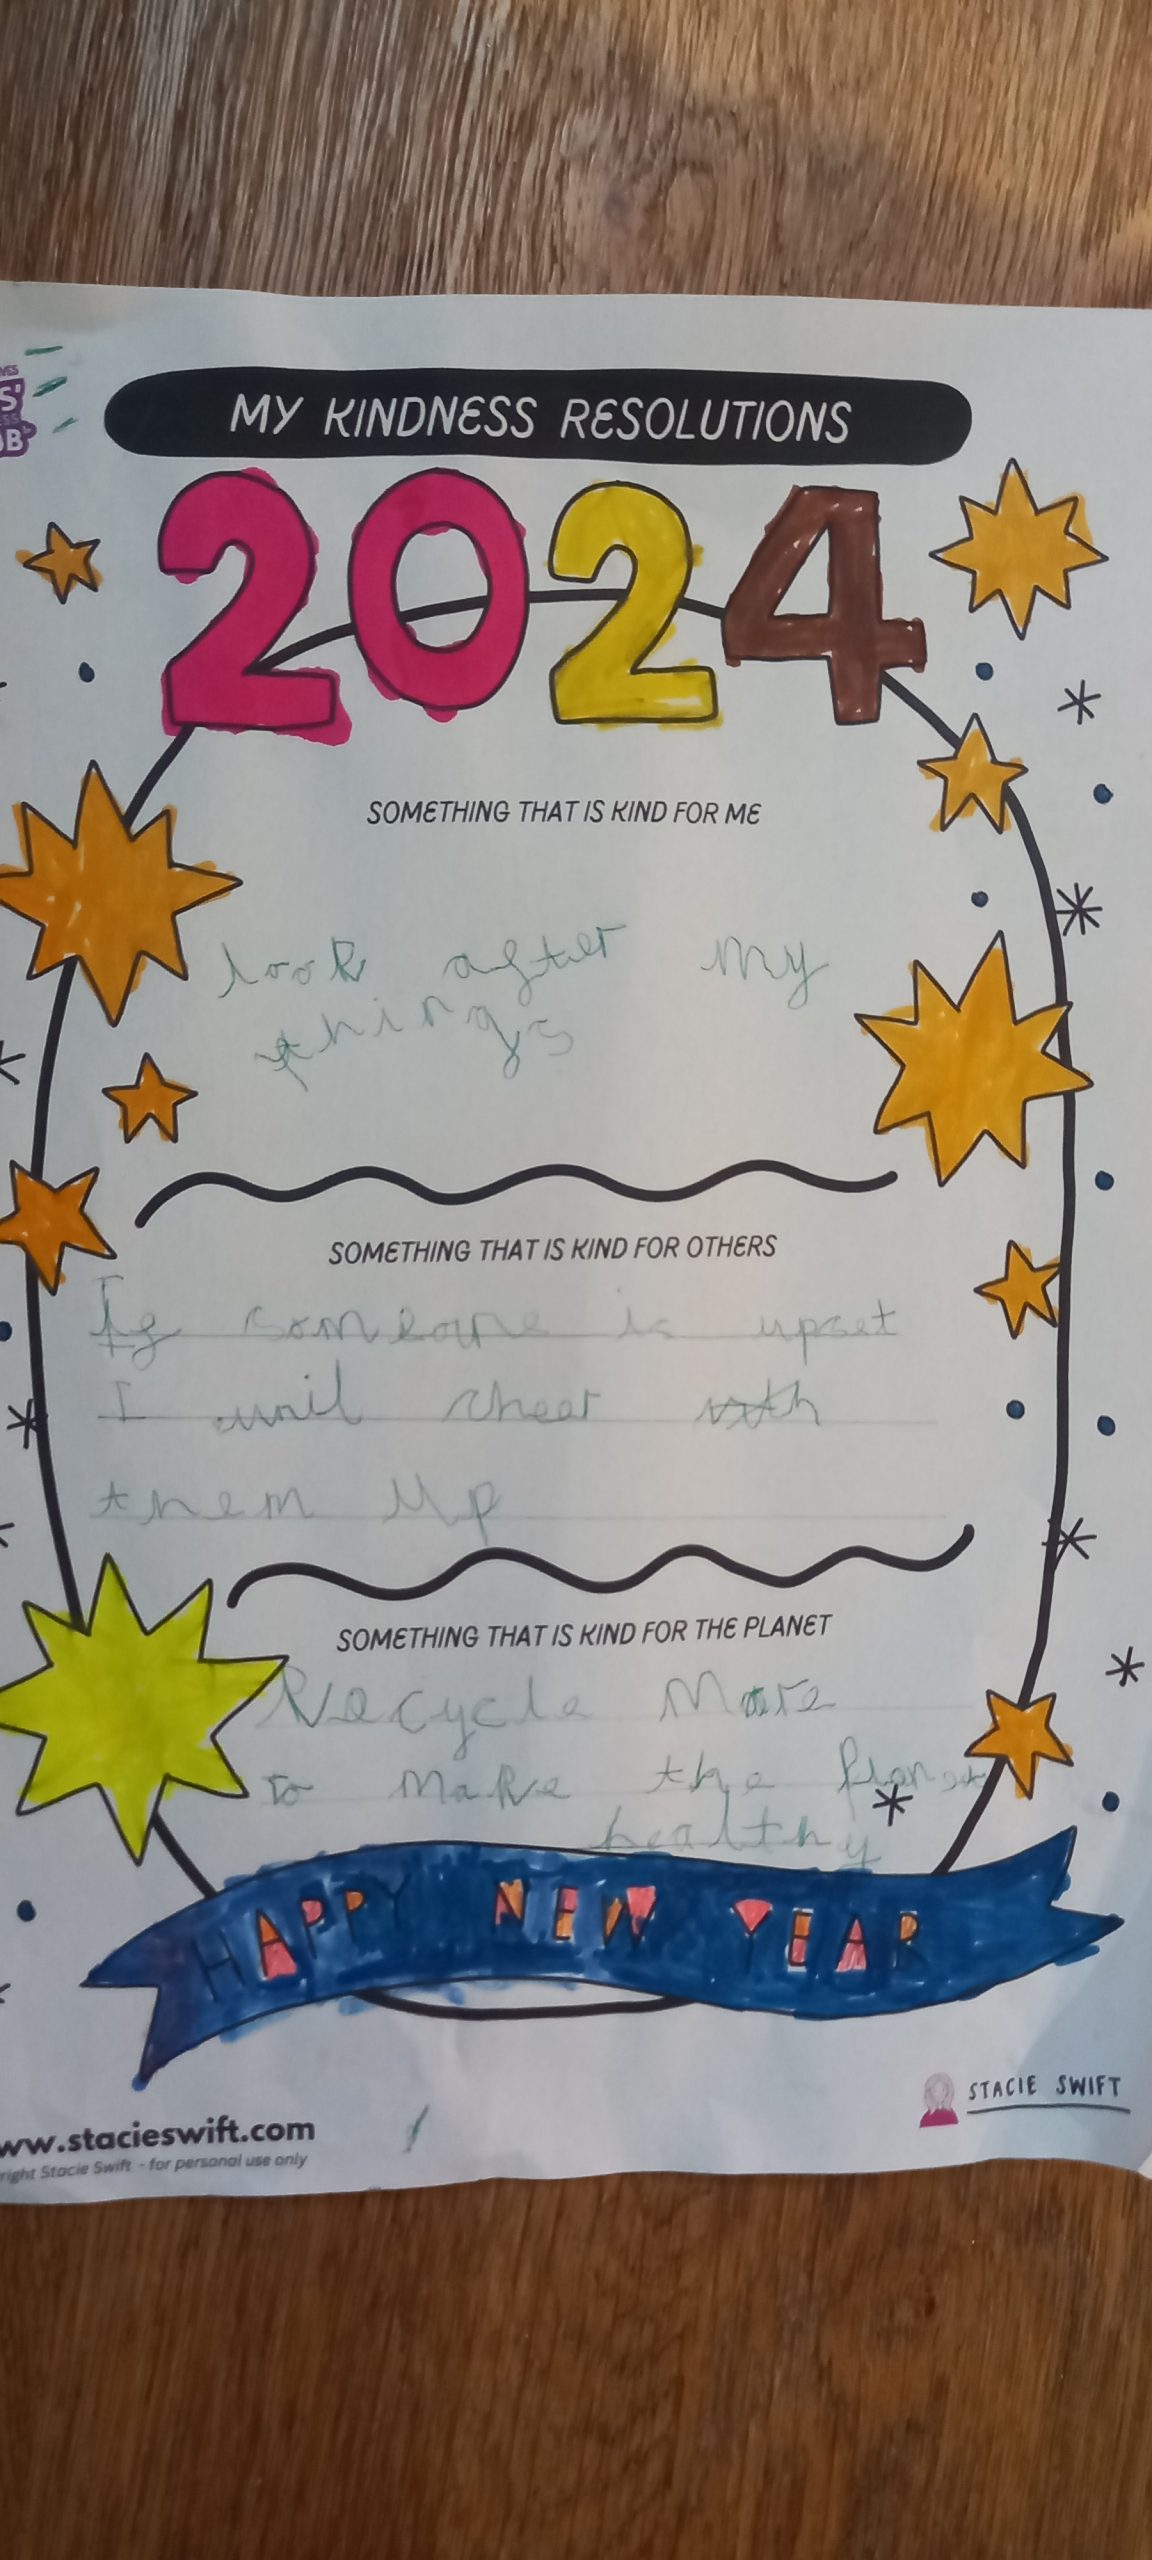 MY KINDNESS RESOLUTIONS
2024
SOMETHING THAT IS KIND FOR ME
look after my
things
SOMETHING THAT IS KIND FOR OTHERS
If someone is upset
I will cheer
them up
SOMETHING THAT IS KIND FOR THE PLANET
Recycle More
To Make the planet
healthy
HAPPY NEW YEAR
STACIE SWIFT
ww.stacieswift.com
right Stacie Swift - for personal use only